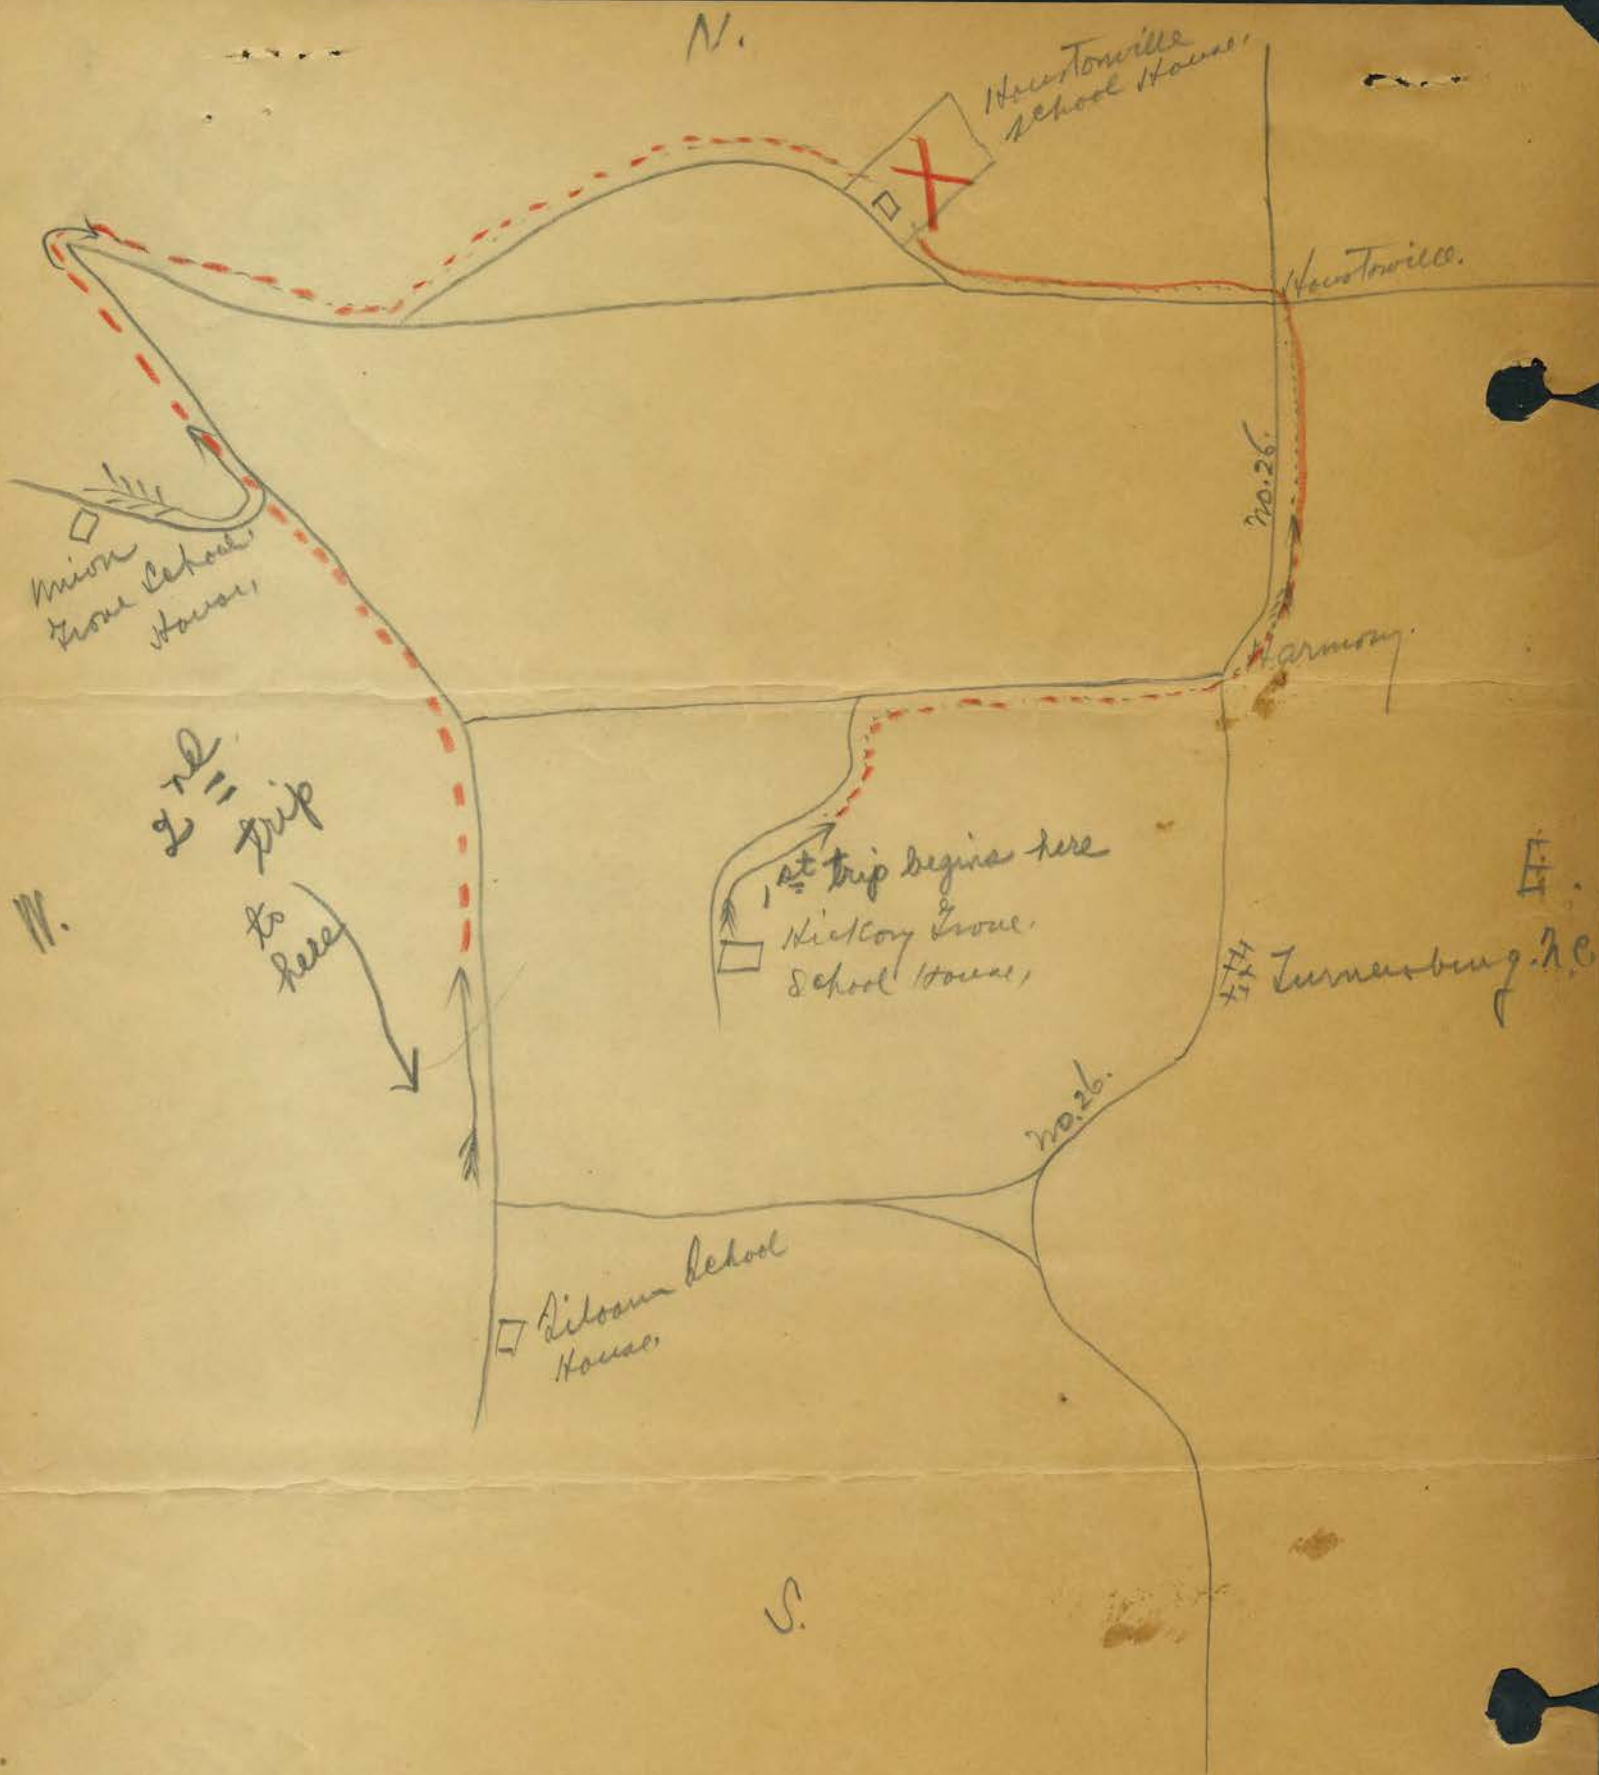 N.
Houstonville
School House,
Houstonville.
No. 26.
Union
Grove School
House,
Harmony.
2nd
trip
to
here
1st trip begins here
Hickory Grove.
School House,
W.
E.
Turnersburg. N.C.
No. 26.
Siloam School
House,
S.